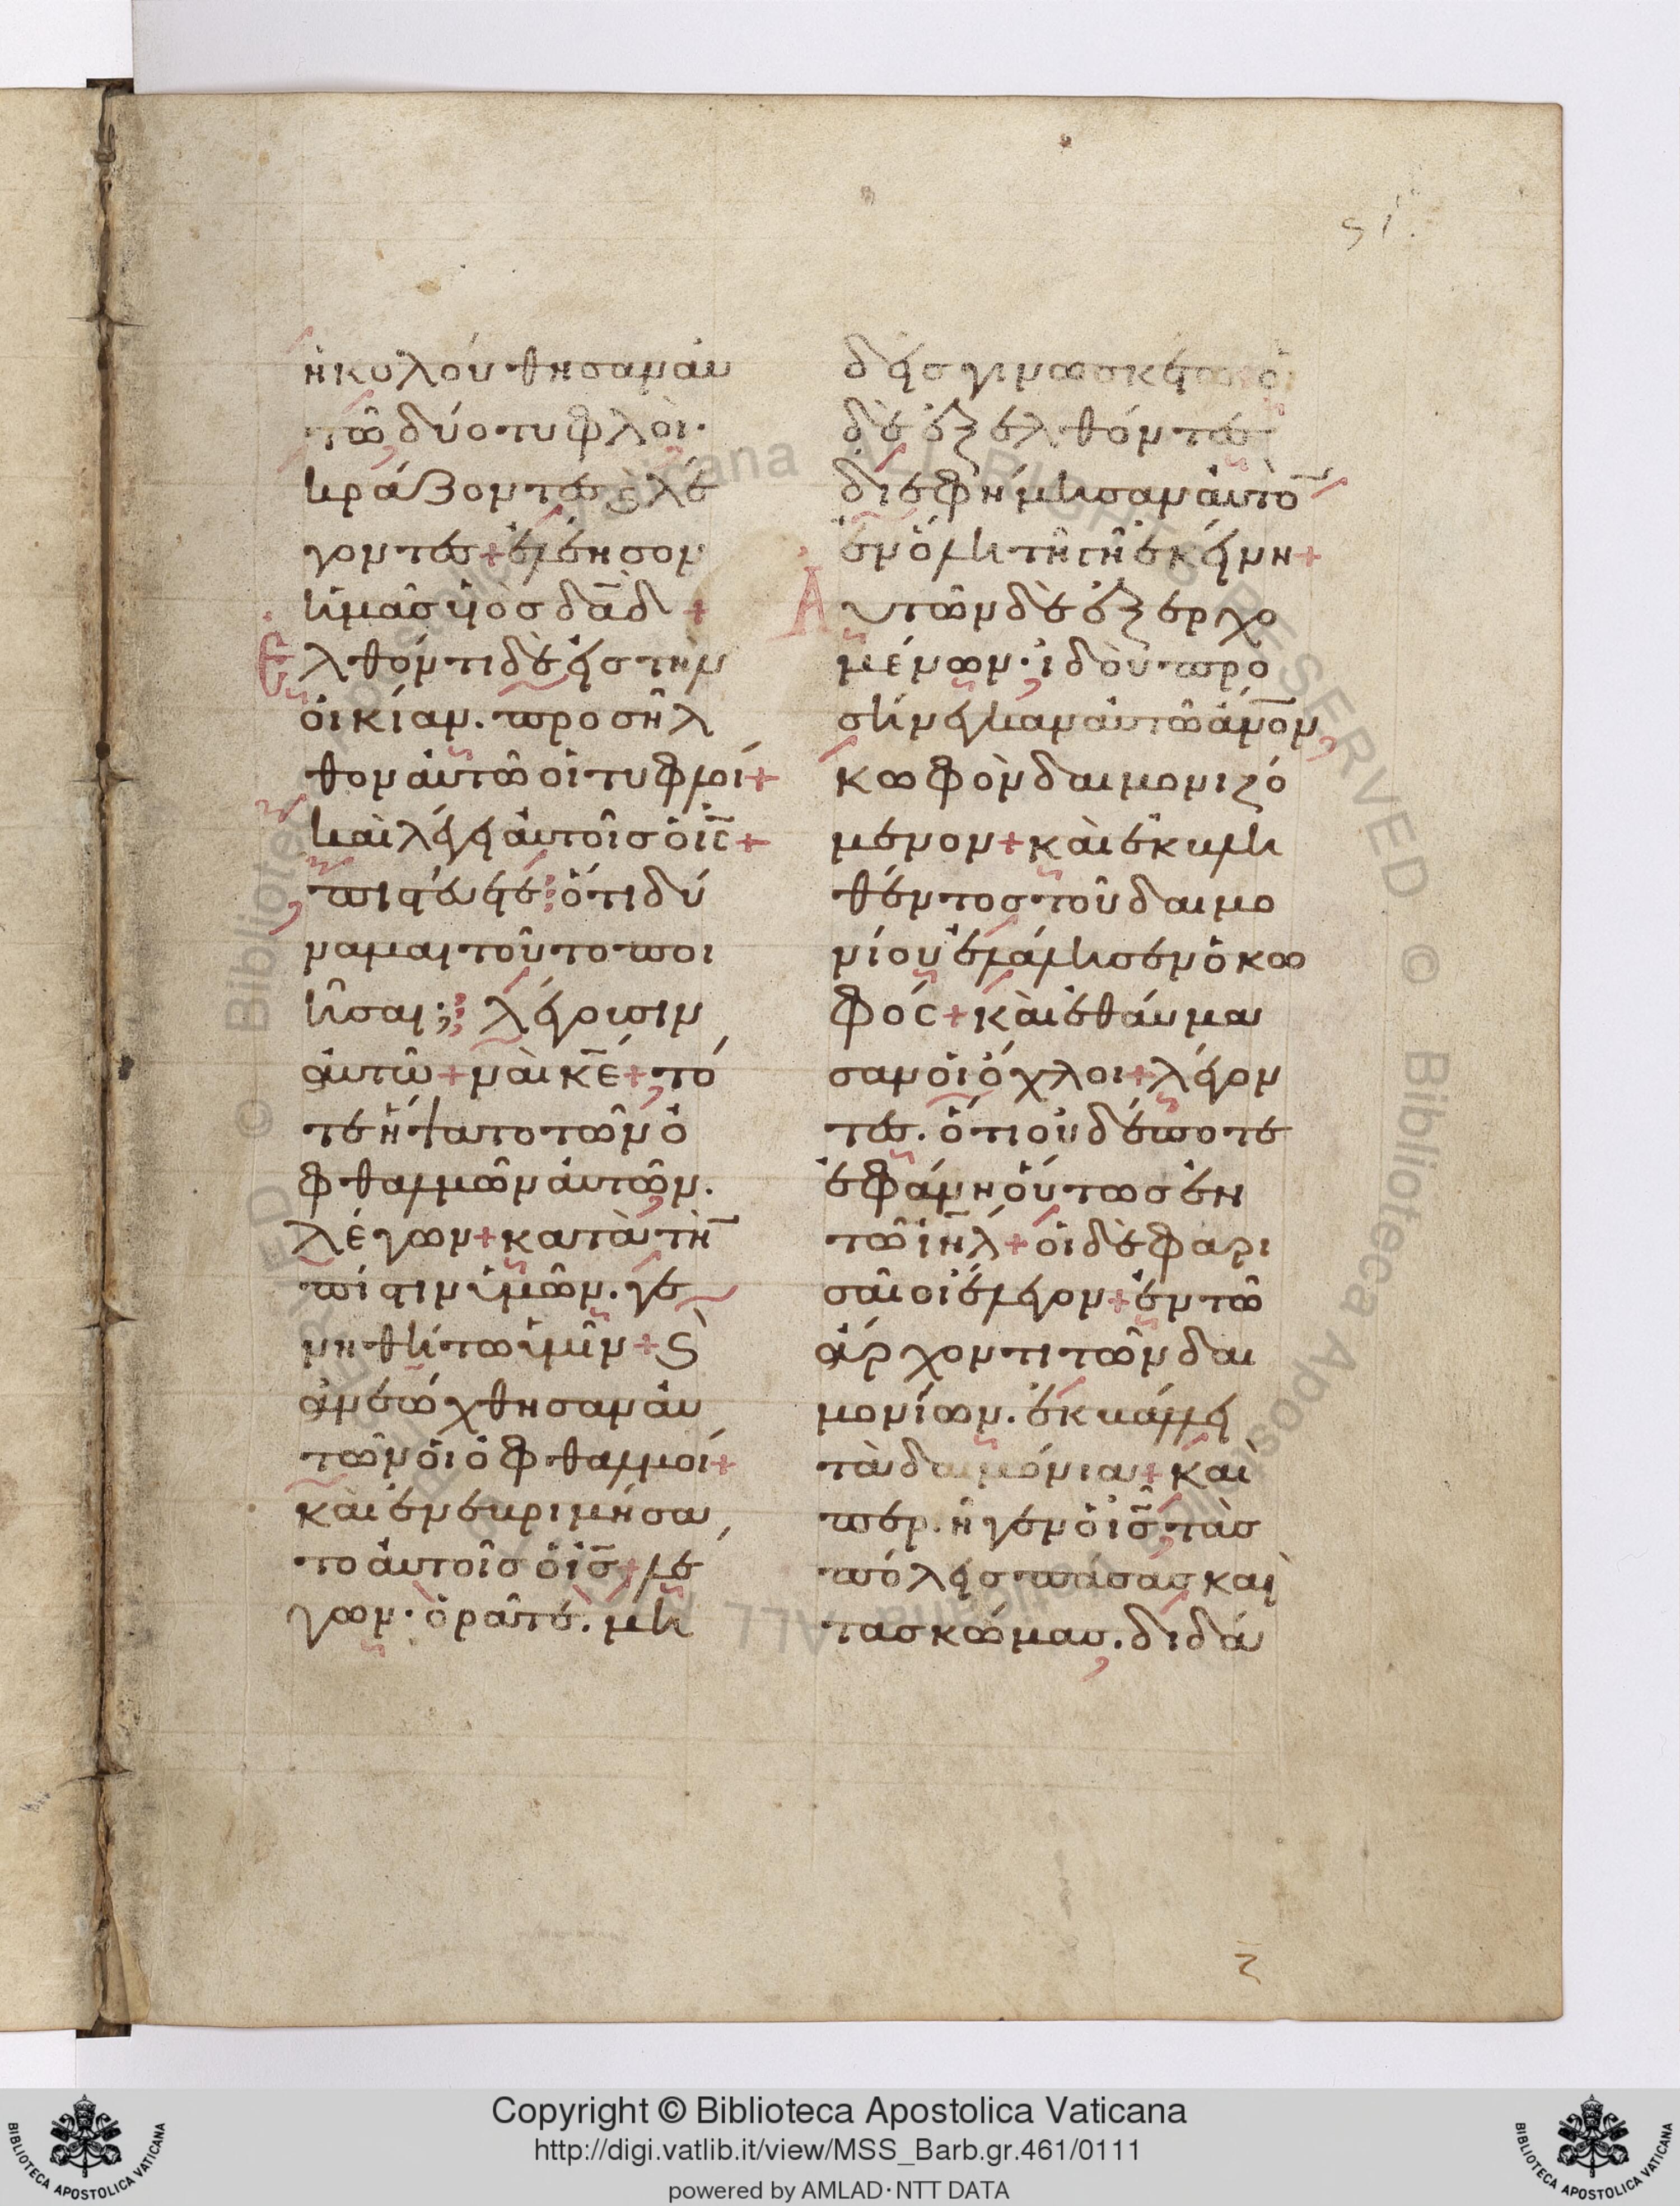 ς ί.
ἠκολούθησαν αὐ
τῶ δύο τυφλοὶ·
κράζοντες ϗ λέ
γοντες + ἐλέησον
ἡμᾶς υἱὸς δα̅δ +
Ἐλθόντι δὲ εἰς τὴν
οἰκίαν. προσῆλ
θον αὐτῶ οἱ τυφλοί +
καὶ λέγει αὐτοῖς ὁ ι̅ς̅ +
πιστεύετε: ὅτι δύ
ναμαι τοῦτο ποι
ῆσαι; λέγουσιν
αὐτῶ + ναὶ κ̅ε̅ + τό
τε ἥψατο τῶν ὀ
φθαλμῶν αὐτῶν.
λέγων + κατὰ τὴ̅
πίστιν ὑμῶν. γε
νηθήτω ὑμῖν + ϗ
ἀνεώχθησαν αὐ
τῶν οἱ ὀφθαλμοί +
καὶ ἐνεβριμήσα
το αὐτοῖς ὁ ι̅ς̅ + λέ
γων· ὁρᾶτε. μὴ
δεὶς γινωσκέτω οἱ
δὲ ἐξελθόντες
διεφήμησαν αὐτὸ̅
ἐν ὅλη τῆ γῆ ἐκείνη +
Αὐτῶν δὲ ἐξερχο
μένων· ἰδοὺ προ
σήνεγκαν αὐτῶ ἄν̅ο̅ν̅
κωφὸν δαιμονιζό
μενον + καὶ ἐκβλη
θέντος τοῦ δαιμο
νίου ἐλάλησεν ὁ κω
φός + καὶ ἐθαύμα
σαν οἱ ὄχλοι + λέγον
τες. ὅτι οὐδέποτε
ἐφάνη οὕτως ἐν
τῶ ι̅η̅λ̅ + οἱ δὲ φαρι
σαῖοι ἔλεγον + ἐν τῶ
ἄρχοντι τῶν δαι
μονίων. ἐκβάλλει
τὰ δαιμόνια + καὶ
περιῆγεν ὁ ι̅ς̅ τὰς
πόλεις πάσας καὶ
τὰς κώμας. διδά
Copyright © Biblioteca Apostolica Vaticana
http://digi.vatlib.it/view/MSS_Barb.gr.461/0111
powered by AMLAD·NTT DATA
BIBLIOTECA APOSTOLICA VATICANA
BIBLIOTECA APOSTOLICA VATICANA